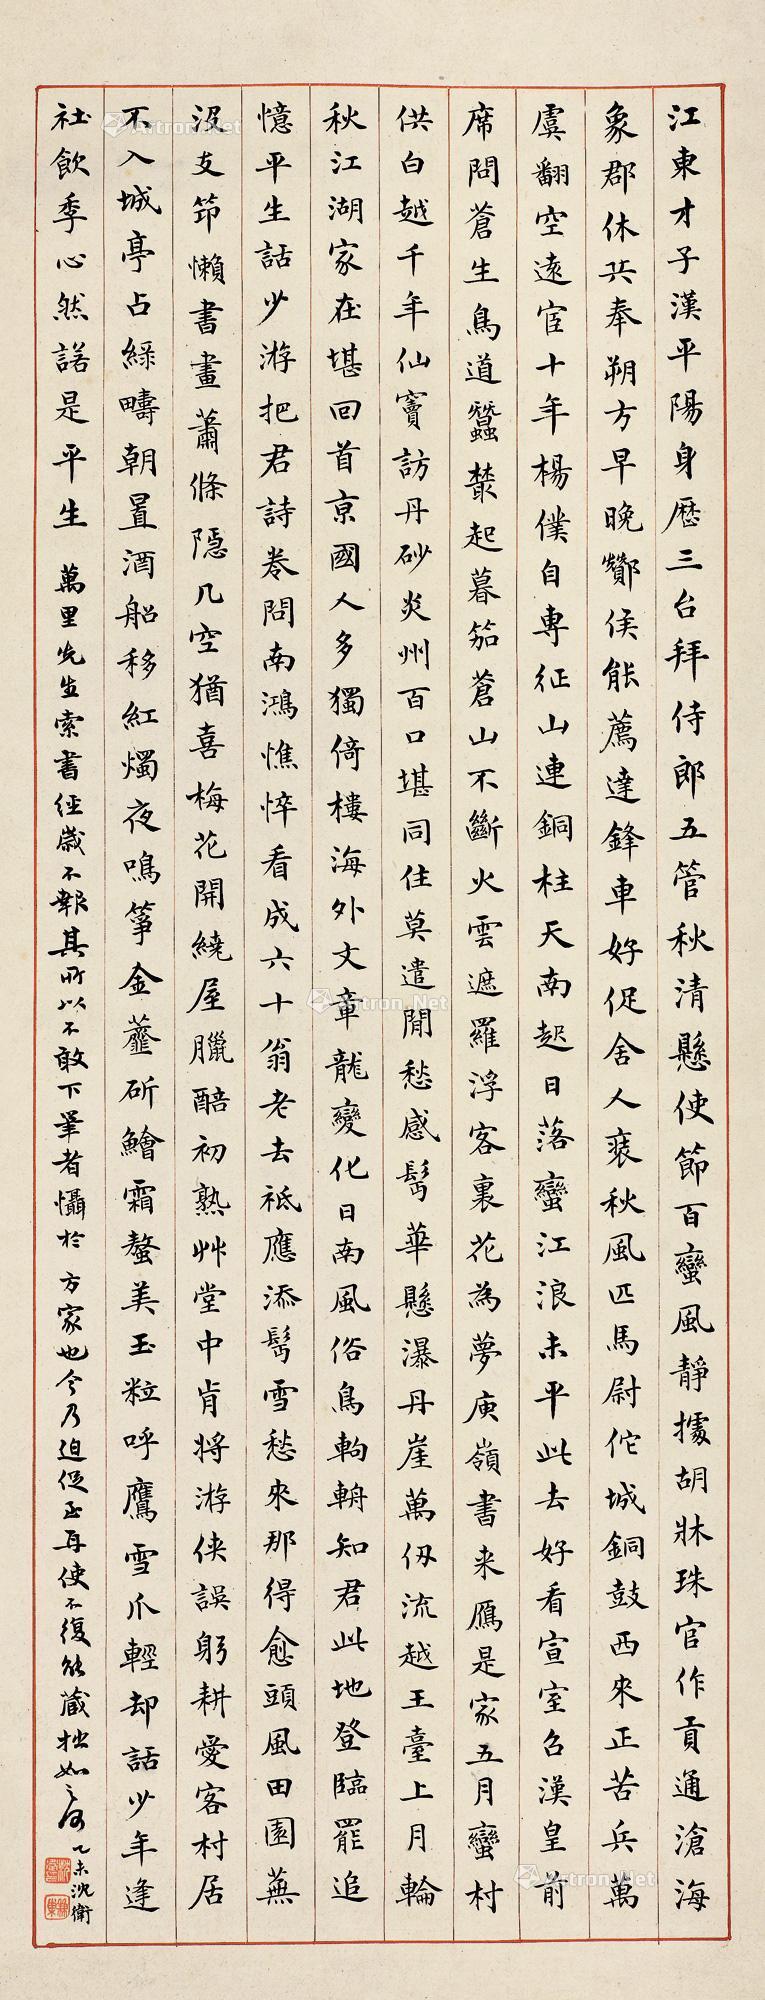 江東才子漢平陽身歷三台拜侍郎五管秋清懸使節百蠻風靜據胡牀珠官作貢通滄海
象郡休兵奉朔方早晚酇侯能薦達鋒車好促舍人裝秋風匹馬尉佗城銅鼓西來正苦兵萬
虞翻空遠宦十年楊僕自專征山連銅柱天南起日落蠻江浪未平此去好看宣室召漢皇前
席問蒼生鳥道蠶叢起暮笳蒼山不斷火雲遮羅浮客裏花為夢庾嶺書來鴈是家五月蠻村
供白越千年仙竇訪丹砂炎州百口堪同住莫遣閒愁感髩華懸瀑丹崖萬仞流越王臺上月輪
秋江湖家在堪回首京國人多獨倚樓海外文章龍變化日南風俗鳥軥輈知君此地登臨罷追
憶平生話少游把君詩卷問南鴻憔悴看成六十翁老去祗應添髩雪愁來那得愈頭風田園蕪
沒支筇懶書畫蕭條隱几空猶喜梅花開繞屋臘醅初熟艸堂中肯將游俠誤躬耕愛客村居
不入城亭占綠疇朝置酒船移紅燭夜鳴箏金虀斫鱠霜螯美玉粒呼鷹雪爪輕却話少年逢
社飲季心然諾是平生 萬里先生索書經歲不報其所以不敢下筆者懾於方家也今乃迫促至再使不復能藏拙如之何 乙未沈衛
Artron.Net
Artron.Net
Artron.Net
Artron.Net